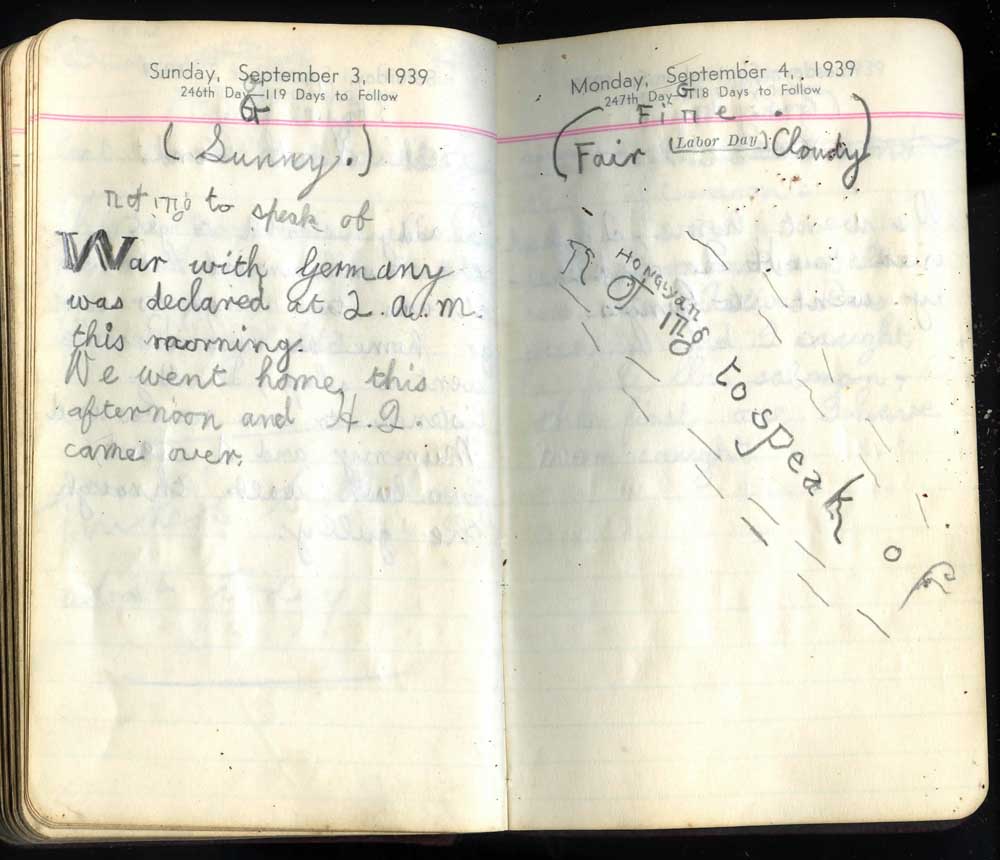 Sunday, September 3, 1939
246th Day—119 Days to Follow
( Sunny. )
not ing to speak of
War with Germany
was declared at 2. a.m.
this morning.
We went home, this
afternoon and H. Q.
came over.
Monday, September 4, 1939
247th Day—118 Days to Follow
( Fine .
Fair (Labor Day) Cloudy )
n of ing to speak of
HONGLYAN